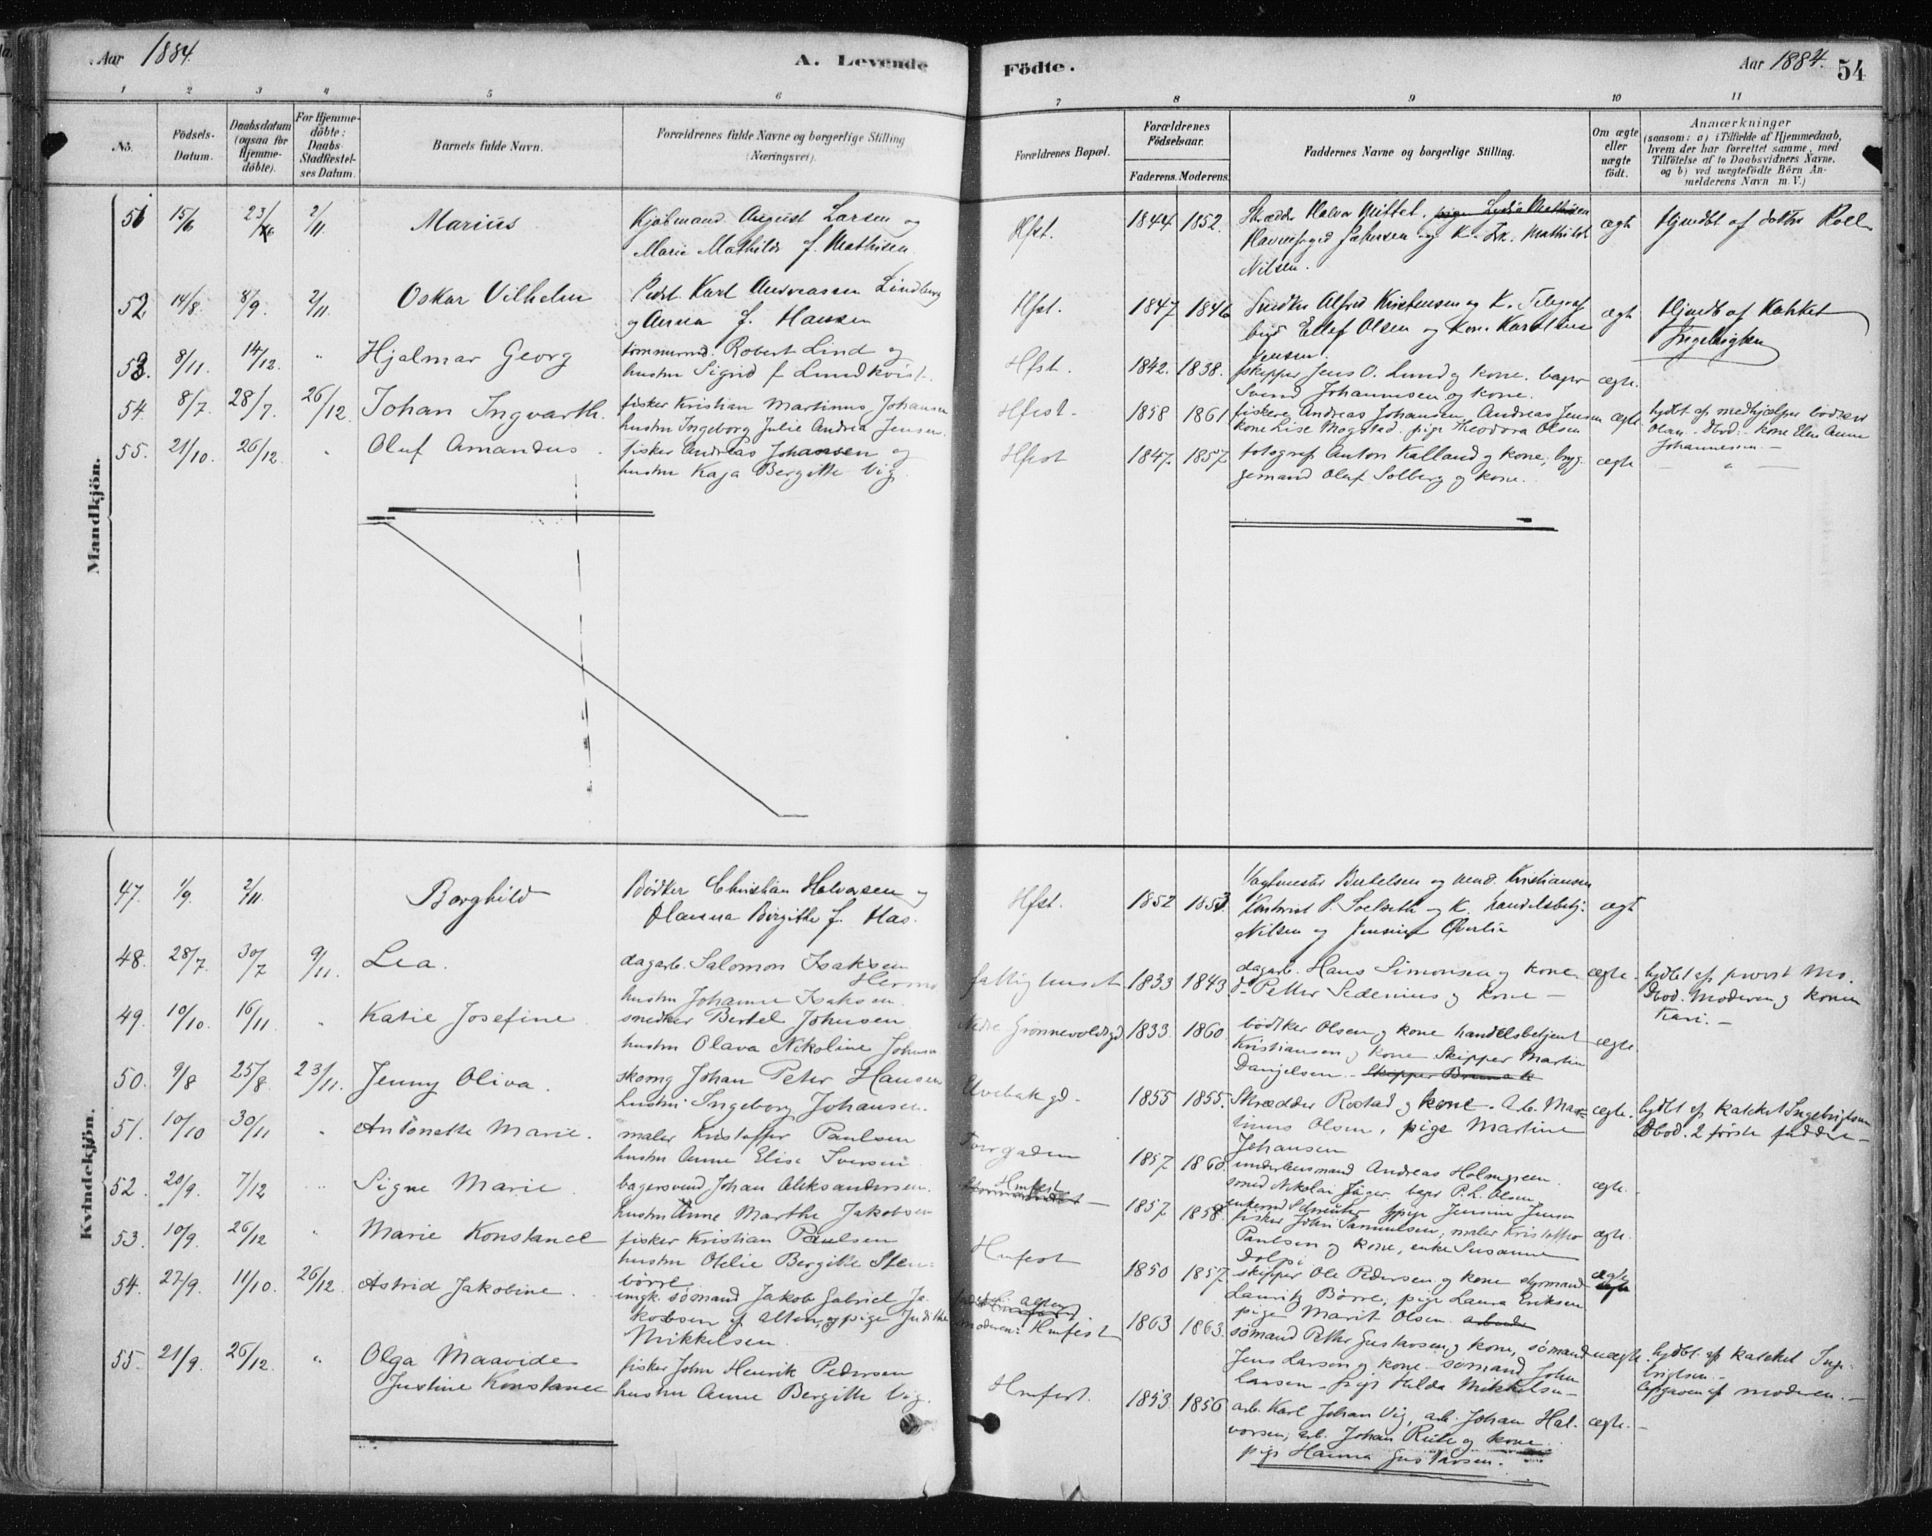 Aar 1884.
A. Levende
Födte.
Aar 1884.
54
1 2 3 4 5 6 7 8 9 10 11
No.
Födsels-Datum.
Daabsdatum (ogsaa for Hjemme-döbte).
For Hjemme-döbte: Daabs Stadfæstel-ses Datum.
Barnets fulde Navn.
Forældrenes fulde Navne og borgerlige Stilling (Næringsvei).
Forældrenes Bopæl.
Forældrenes Födselsaar.
Faderens. Moderens.
Faddernes Navne og borgerlige Stilling.
Om ægte eller uægte födt.
Anmærkninger
(saasom: a) i Tilfælde af Hjemmedaab,
hvem der har forrettet samme, med
Tilföielse af to Daabsvidners Navne,
og b) ved uægtefödte Börn An-
melderens Navn m. V.)
Mandkjön.
51 15/6 2/11 Marius Kjøbmand August Larsen og Hfst. 1844 1852. ægte Hjmdbt af doktor Roll
Marie Mathilde f. Mathisen
Nilsen.
52 14/8 8/9 2/11 Oskar Vilhelm Karl Andreassen Lindberg Hfst. 1847 1846 Snedker Alfred Kristensen og K. Telegraf ægt Hjmdbt af Kateket
og Anna f. Hansen bud Ellef Olsen og Kone Karoline Ingebrigtsen
Jensen.
53. 8/11. 14/12. " Hjalmar Georg tømmermd. Robert Lind og Hfst. 1842. 1838. skipper Jens O. Lund og kone. bager ægte.
hustru Sigrid f Lundkvist. Svend Johannesen og kone.
54. 8/7 28/7. 26/12. Johan Ingvarth. fisker Kristian Martinus Johansen Hfest. 1858 1861 fiskere Andreas Johansen, Andreas Jensen ægte. hjdbt. af medhjælper
hustru Ingeborg Julie Andrea Jensen. kone Lise Mogstad. pige Theodora Olsen Olsen. Hbod. kone Elen Anne
Johannesen. —
55. 21/10. 26/12. " Oluf Amandus. fisker Andreas Johansen og Hfest 1847. 1857 fotograf Anton Kalland og kone, bryg- ægte — " —
hustru Kaja Bergitte Vig. gemand Oluf Solberg og kone.
Kvindekjön.
47. 1/9. 2/11. Borghild Bødker Christian Halvorsen og Hfst. 1852 1853 Vagtmester Bertelsen og Kristiansen ægt
Hanna Birgithe f. Has. P. Solseth og K. handelsbetj.
Nilsen og Jensine Øverlie
48. 28/7. 30/7 9/11. Lea. dagarb. Salomon Isaksen fattighuset 1833 1843 dagarb. Hans Simonsen og kone ægte. hjdbt af provst Mo.
hustru Johanne Isaksen. Petter Sedenius og kone — Hbod. Moderen og konen
Kari. —
49. 10/10. 16/11 " Katie Josefine. snedker Bertel Johnsen Nedre Grønnevoldsgd 1833 1860. bødtker Olsen og kone handelsbetjent ægte.
hustru Olava Nikoline Johnsen Kristiansen og kone Skipper Martin
Danjelsen. —
50. 9/8 25/8. 23/11. Jenny Oliva. skomg Johan Peter Hansen Elvebakgd. 1855 1855. Skrædder Rostad og kone. arb. Mar- ægte. hjdbt af Katket Ingebrigtsen
hustru Ingeborg Johansen. tinus Olsen, pige Martine Hbod. 2 første faddere —
Johansen
51. 10/10 30/11 " Antonette Marie. maler Kristoffer Paulsen Torvgaden 1857 1860. underlensmand Andreas Holmgreen. ægte.
hustru Anne Elise Iversen smed Nikolai Jäger, bager P. L. Olsen,
pige Jensine Jensen
52. 20/9. 7/12 Signe Marie. bagersvend Johan Aleksandersen. Hmfest 1857 1858. fisker John Samuelsen, maler Kristoffer ægte.
hustru Anne Marthe Jakobsen Paulsen og kone, enke Susanne
53. 10/9. 26/12 " Marie Konstance fisker Kristian Paulsen Hmfest 1850 1857. skipper Ole Pedersen og kone styrmand ægte
hustru Otelie Bergitte Sten- Lauritz Børre, pige Laura Eriksen
børre. pige Marit Olsen.
54. 27/9. 11/10. 26/12. Astrid Jakobine. ungk. sømand Jakob Gabriel Ja- 1863 1863. sømand Petter Gustavsen og kone, sømand uægte. hjdbt. af katket Inge-
kobsen af Alten, og pige Judithe moderen: Hmfest Jens Larsen og kone — sømand John brigtsen. —
Mikkelsen. Larsen — pige Hilda Mikkelsen — Opgaven af moderen. —
55. 21/9. 26/12. " Olga Maavide fisker John Henrik Pedersen Hmfest. 1853 1856 arb. Karl Johan Vig, arb. Johan Hal- ægte. —
Justine Konstance hustru Anne Bergitte Vig. vorsen, arb. Johan og kone
pige Hanna Gustavsen.